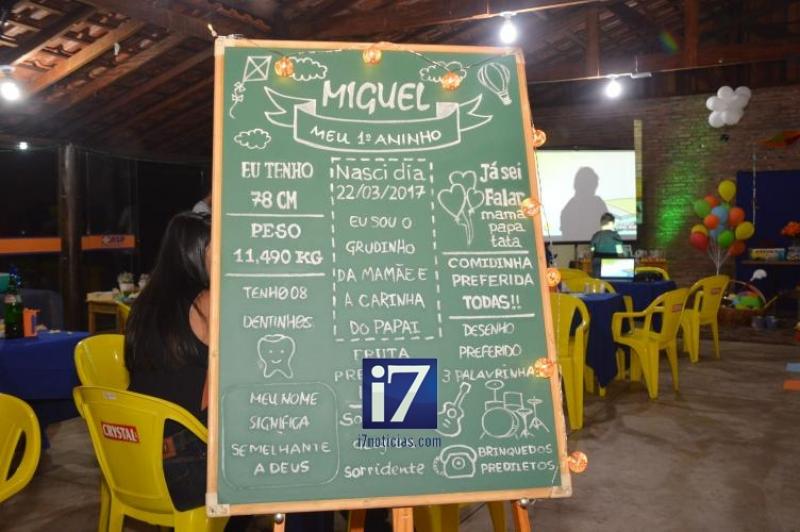 MIGUEL
MEU 1º ANINHO
EU TENHO
78 CM
PESO
11,490 KG
TENHO 08
DENTINHOS
MEU NOME
SIGNIFICA
SEMELHANTE
A DEUS
Nasci dia
22/03/2017
EU SOU O
GRUDINHO
DA MAMÃE E
A CARINHA
DO PAPAI
FRUTA
sorridente
Já sei
Falar
mama
papa
tata
COMIDINHA
PREFERIDA
TODAS!!
DESENHO
PREFERIDO
3 PALAVRINHAS
BRINQUEDOS
PREDILETOS
i7
i7noticias.com
CRYSTAL